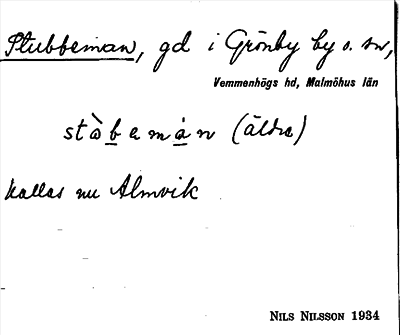 Stubbeman, gd i Grönby by o. sn,
Vemmenhögs hd, Malmöhus län
stàbemán (äldre)
kallas nu Almvik
NILS NILSSON 1934